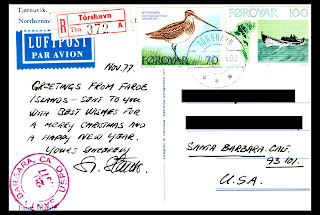 Tjørnuvík.
Northernm
R
Tórshavn
Thn 372 A
LUFTPOST
PAR AVION
FØROYAR 70
FØROYAR 100
TÓRSHAVN
NOV. 77.
GREETINGS FROM FAROE
ISLANDS - SENT TO YOU
WITH BEST WISHES FOR
A MERRY CHRISTMAS AND
A HAPPY NEW YEAR.
YOURS SINCERELY
SANTA BARBARA. CALIF.
93101.
U.S.A.
BARBARA, CA
USPO